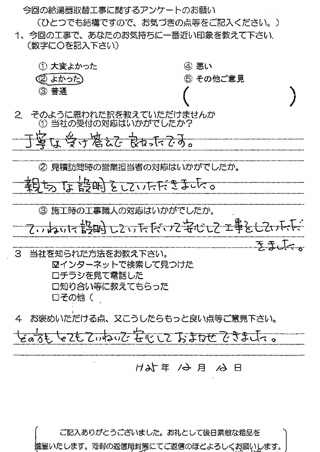 今回の給湯器取替工事に関するアンケートのお願い
(ひとつでも結構ですので、お気づきの点等をご記入ください。)
1、今回の工事で、あなたのお気持ちに一番近い印象を教えて下さい。
(数字に○を記入下さい)
① 大変よかった ④ 悪い
② よかった ⑤ その他ご意見
③ 普通 ( )
2. そのように思われた訳を教えていただけませんか
① 当社の受付の対応はいかがでしたか?
丁寧な受け答えで良かったです。
② 見積訪問時の営業担当者の対応はいかがでしたか。
親切な説明をしていただきました。
③ 施工時の工事職人の対応はいかがでしたか。
ていねいに説明していただいて安心して工事をしていただ
きました。
3 当社を知られた方法をお教え下さい。
☑インターネットで検索して見つけた
□チラシを見て電話した
□知り合い等に教えてもらった
□その他(
4 お褒めいただける点、又こうしたらもっと良い点等ご意見下さい。
どの方もとてもていねいで安心しておまかせできました。
H25年 12月 12日
ご記入ありがとうございました。お礼として後日素敵な粗品を
進呈いたします。同封の返信用封筒にてご返信のほどよろしくお願いします。